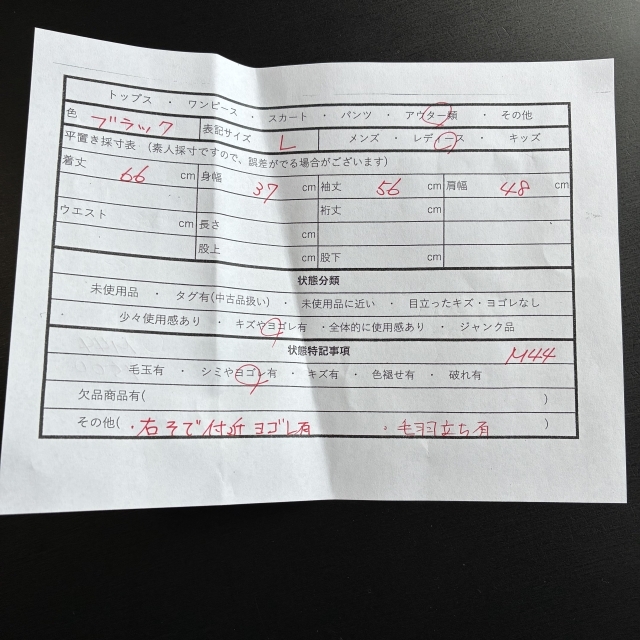 トップス ・ ワンピース ・ スカート ・ パンツ ・ アウター類 ・ その他
色 ブラック 表記サイズ L メンズ ・ レディース ・ キッズ
平置き採寸表 （素人採寸ですので、誤差がでる場合がございます）
着丈 66 cm 身幅 37 cm 袖丈 56 cm 肩幅 48 cm
裄丈 cm
ウエスト cm 長さ cm
股上 cm 股下 cm
状態分類
未使用品 ・ タグ有(中古品扱い) ・ 未使用品に近い ・ 目立ったキズ・ヨゴレなし
少々使用感あり ・ キズやヨゴレ有 ・全体的に使用感あり ・ ジャンク品
状態特記事項 M44
毛玉有 ・ シミやヨゴレ有 ・ キズ有 ・ 色褪せ有 ・ 破れ有
欠品商品有( )
その他( ・右そで付近ヨゴレ有 ・毛羽立ち有 )